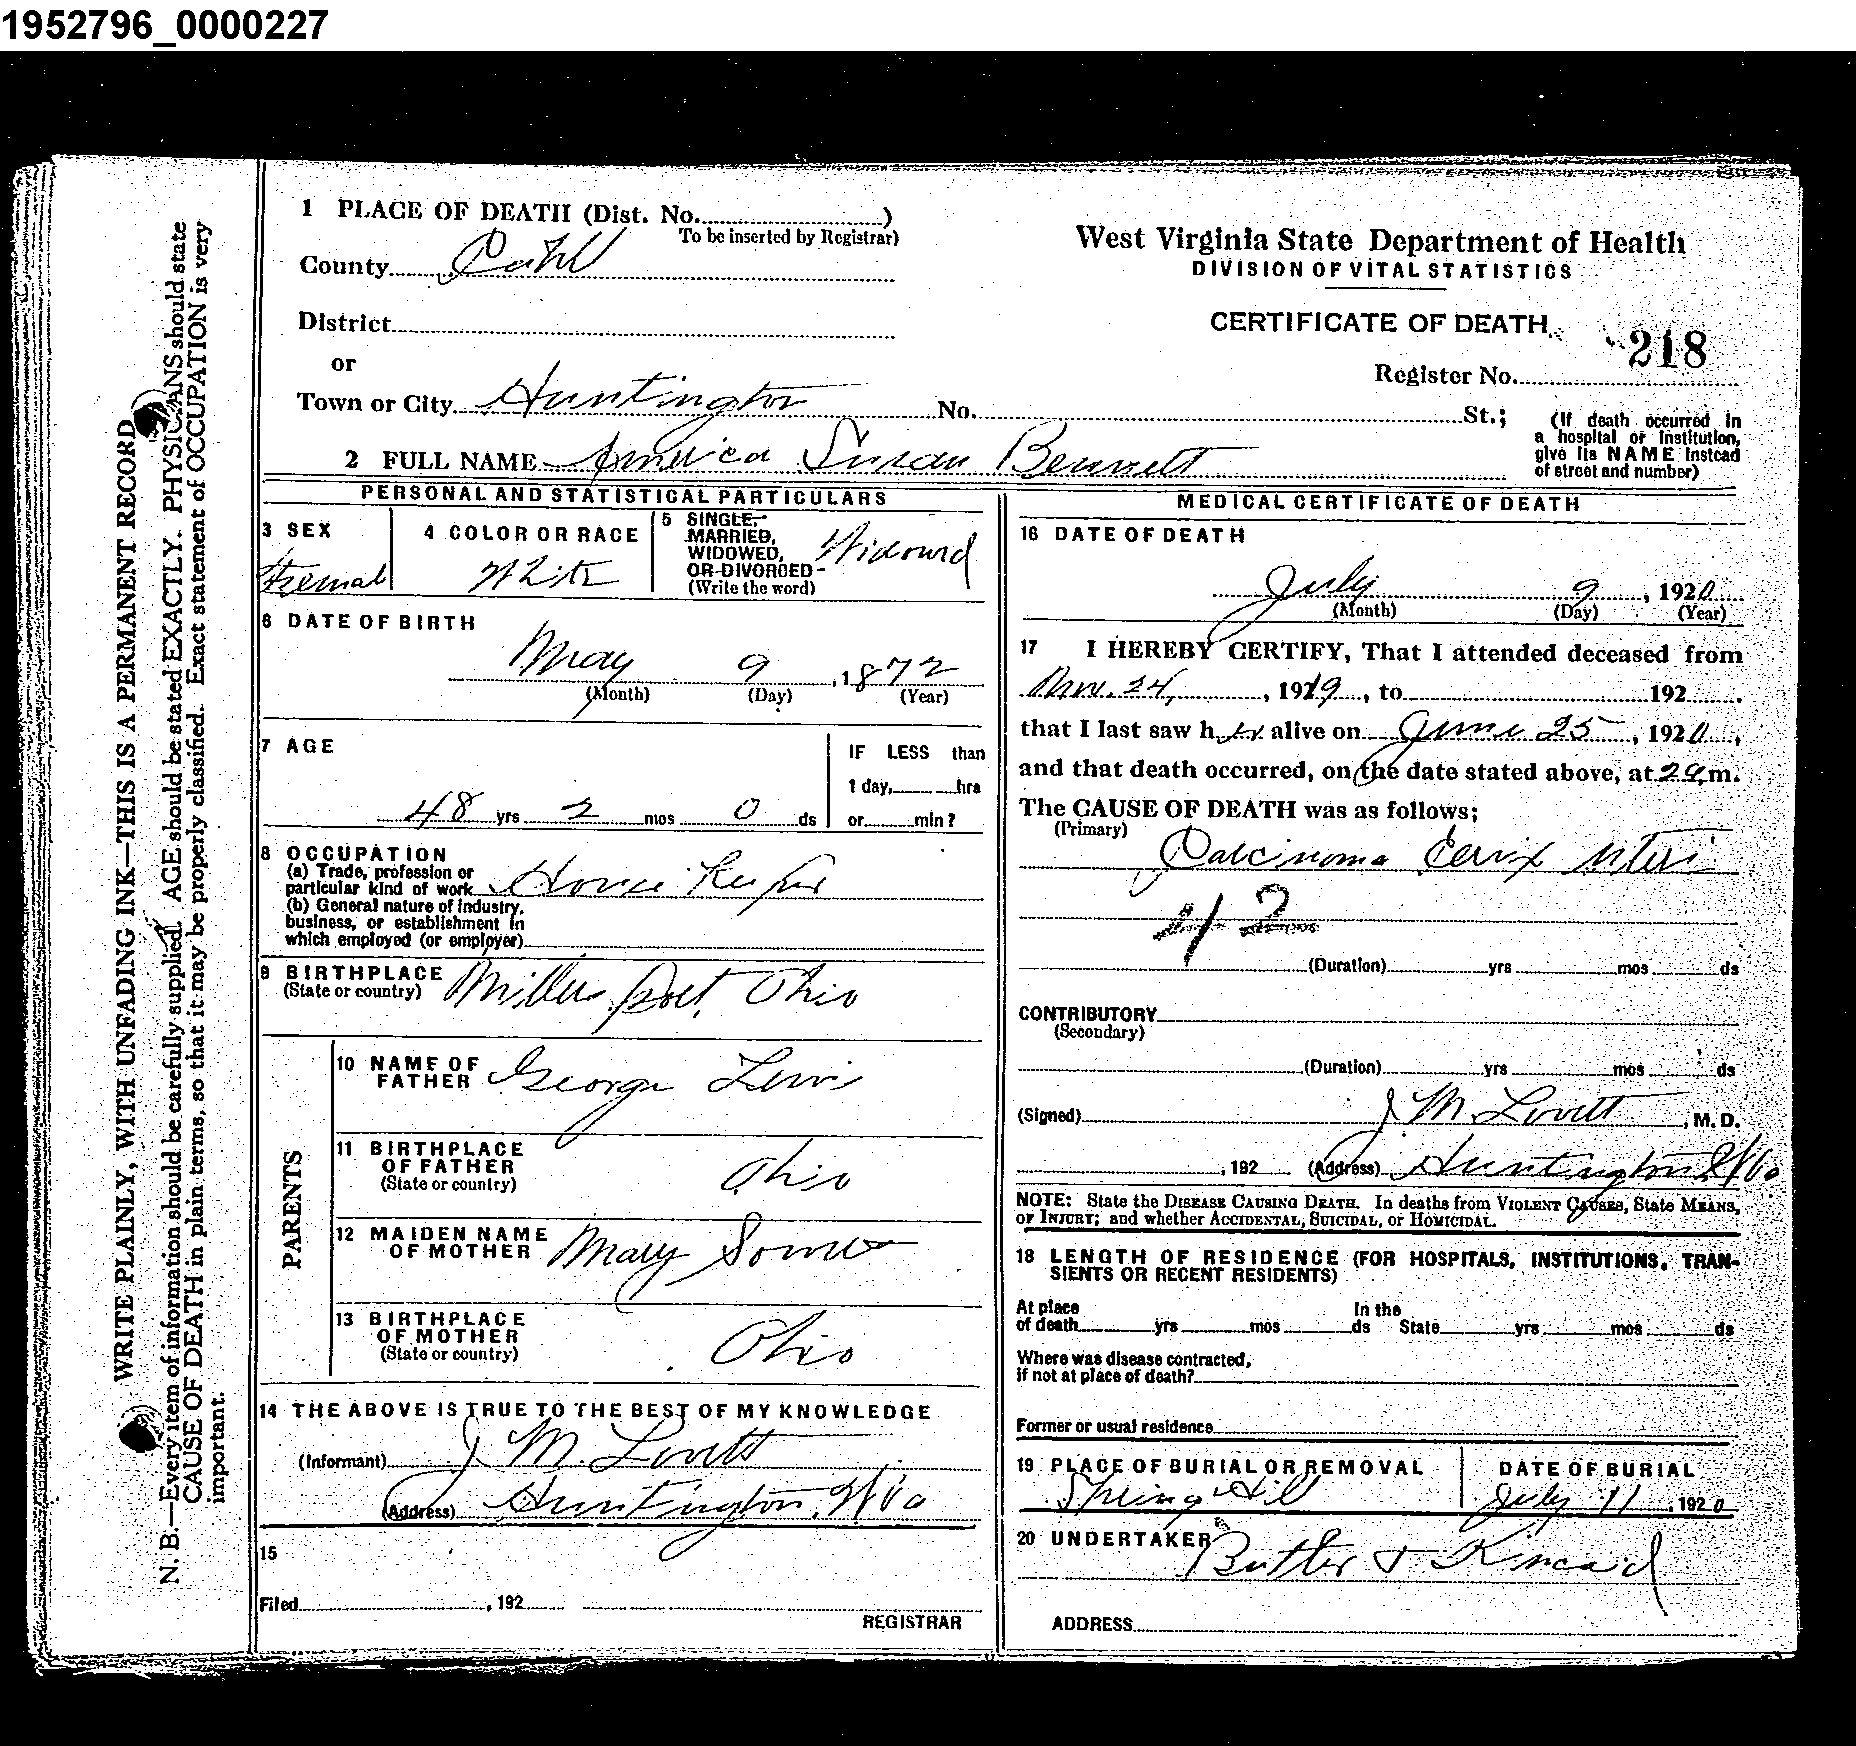 1952796_0000227
WRITE PLAINLY, WITH UNFADING INK—THIS IS A PERMANENT RECORD
N. B.—Every item of information should be carefully supplied. AGE should be stated EXACTLY. PHYSICIANS should state
CAUSE OF DEATH in plain terms, so that it may be properly classified. Exact statement of OCCUPATION is very
important.
1 PLACE OF DEATH (Dist. No. )
To be inserted by Registrar)
County Cabell
District
or
Town or City Huntington No. St.;
2 FULL NAME America Susan Bennett
West Virginia State Department of Health
DIVISION OF VITAL STATISTICS
CERTIFICATE OF DEATH
218
Register No.
(If death occurred in
a hospital or institution,
give its NAME instead
of street and number)
PERSONAL AND STATISTICAL PARTICULARS
3 SEX
Femal
4 COLOR OR RACE
White
5 SINGLE,
MARRIED,
WIDOWED,
OR DIVORCED
(Write the word)
Widowed
6 DATE OF BIRTH
May 9, 1872
(Month) (Day) (Year)
7 AGE
48 yrs 2 mos 0 ds
IF LESS than
1 day, hrs
or min?
8 OCCUPATION
(a) Trade, profession or
particular kind of work House Keeper
(b) General nature of industry,
business, or establishment in
which employed (or employer)
9 BIRTHPLACE
(State or country) Millers Port, Ohio
PARENTS
10 NAME OF
FATHER George Lewis
11 BIRTHPLACE
OF FATHER
(State or country) Ohio
12 MAIDEN NAME
OF MOTHER Mary
13 BIRTHPLACE
OF MOTHER
(State or country) Ohio
14 THE ABOVE IS TRUE TO THE BEST OF MY KNOWLEDGE
(Informant) J M. Lovett
(Address) Huntington, W Va
15
Filed , 192
REGISTRAR
MEDICAL CERTIFICATE OF DEATH
16 DATE OF DEATH
July 9, 1920
(Month) (Day) (Year)
17 I HEREBY CERTIFY, That I attended deceased from
Nov. 24, 1919, to 192
that I last saw her alive on June 25, 1920,
and that death occurred, on the date stated above, at m.
The CAUSE OF DEATH was as follows;
(Primary)
Carcinoma Cervix Uteri
42
(Duration) yrs mos ds
CONTRIBUTORY
(Secondary)
(Duration) yrs mos ds
(Signed) J M. Lovett, M. D.
, 192 (Address) Huntington W Va
NOTE: State the DISEASE CAUSING DEATH. In deaths from VIOLENT CAUSES, State MEANS,
or INJURY; and whether ACCIDENTAL, SUICIDAL, or HOMICIDAL.
18 LENGTH OF RESIDENCE (FOR HOSPITALS, INSTITUTIONS, TRAN-
SIENTS OR RECENT RESIDENTS)
At place In the
of death yrs mos ds State yrs mos ds
Where was disease contracted,
if not at place of death?
Former or usual residence
19 PLACE OF BURIAL OR REMOVAL
Spring Hill
DATE OF BURIAL
July 11, 1920
20 UNDERTAKER
Butler & Kincaid
ADDRESS